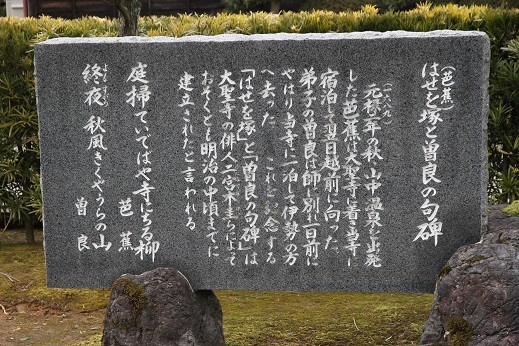 (芭蕉)
はせを塚と曽良の句碑
(一六八九)
元禄二年の秋、山中温泉を出発
した芭蕉は大聖寺に着き当寺に
宿泊して翌日越前に向った。
弟子の曽良は師と別れ一日前に
やはり当寺に一泊して伊勢の方
へ去った これを記念する
「はせを塚」と「曽良の句碑」は
大聖寺の俳人二宮木圭らによって
おそくとも明治の中頃までに
建立されたと言われる
庭掃ていではや寺にちる柳
芭蕉
よもすがら
終夜秋風きくやうらの山
曽良